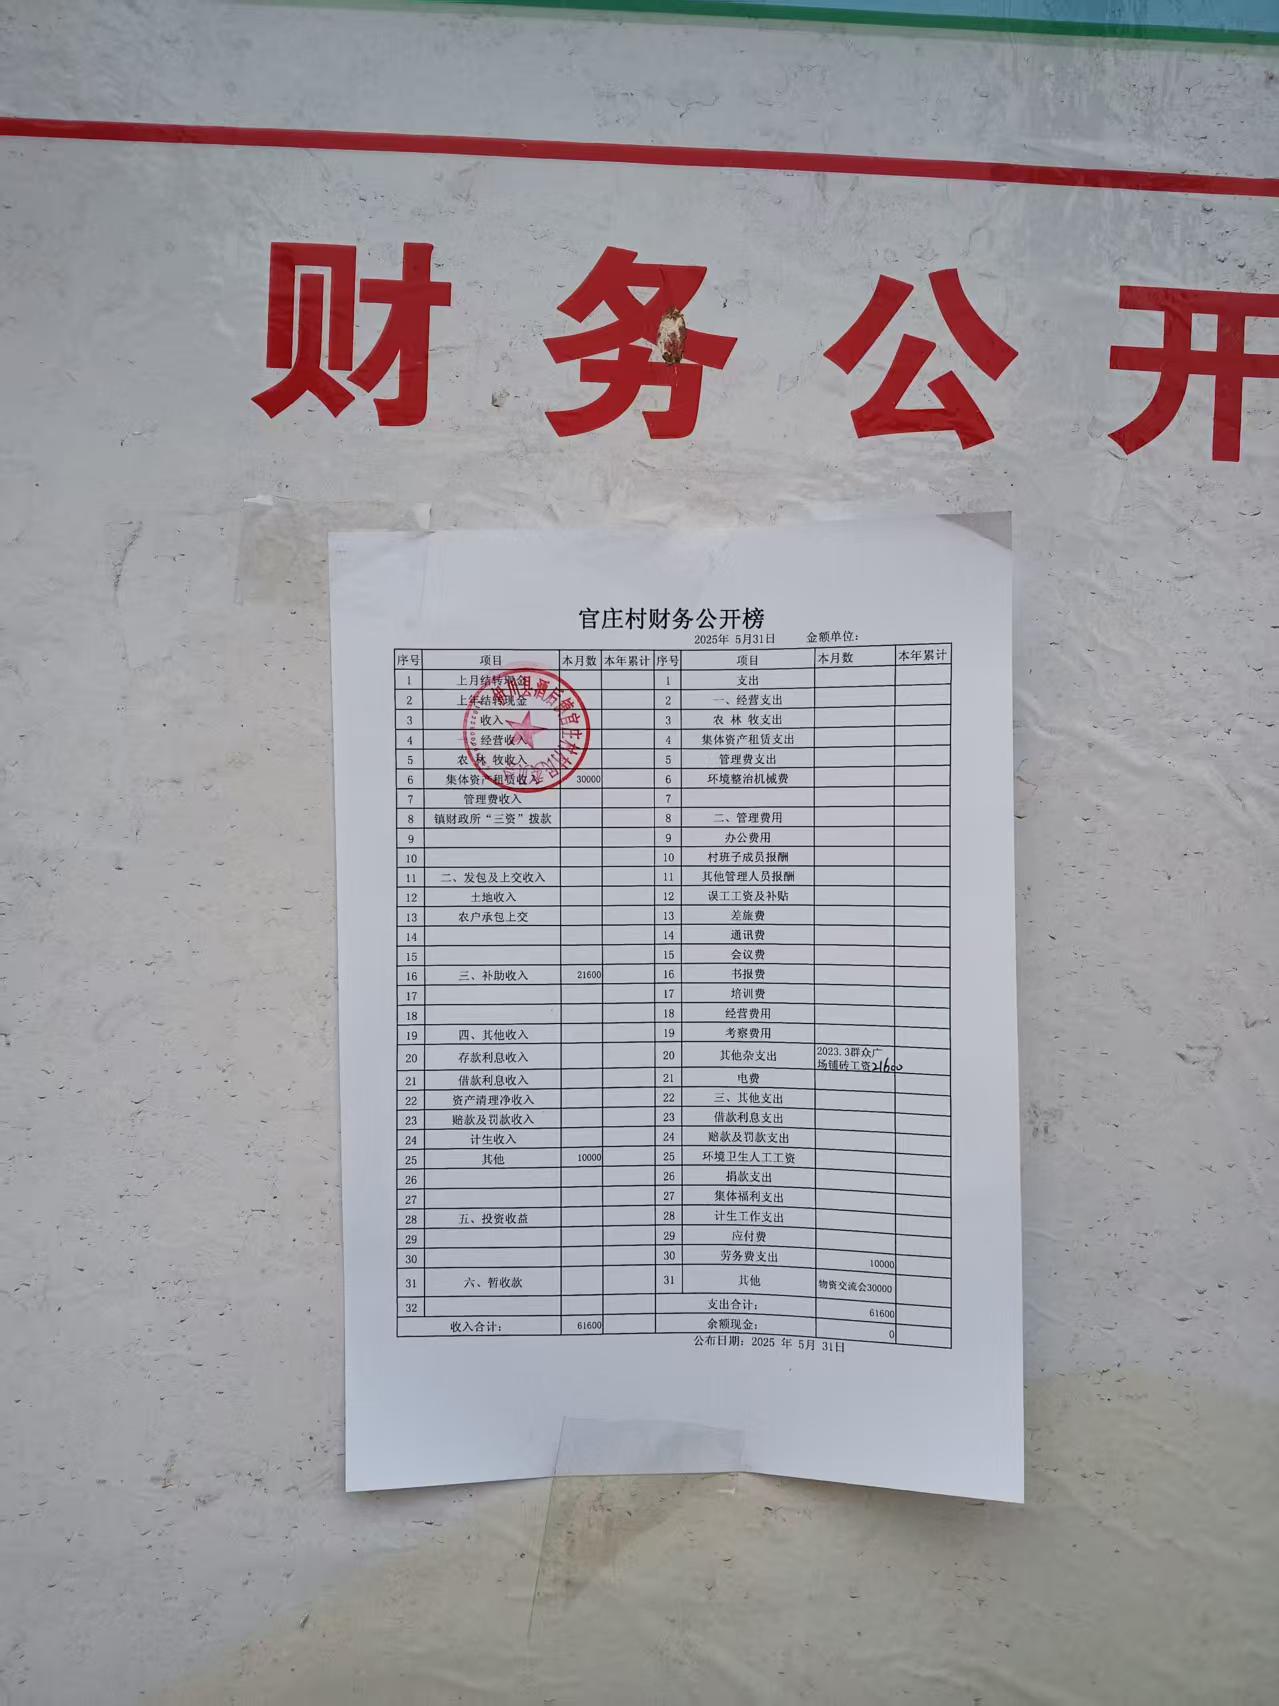 财务公开
官庄村财务公开榜
2025年 5月31日 金额单位：
序号 项目 本月数 本年累计 序号 项目 本月数 本年累计
1 上月结转现金 1 支出
2 上年结转现金 2 一、经营支出
3 收入 3 农 林 牧支出
4 经营收入 4 集体资产租赁支出
5 农 林 牧收入 5 管理费支出
6 集体资产租赁收入 30000 6 环境整治机械费
7 管理费收入 7
8 镇财政所“三资”拨款 8 二、管理费用
9 9 办公费用
10 10 村班子成员报酬
11 二、发包及上交收入 11 其他管理人员报酬
12 土地收入 12 误工工资及补贴
13 农户承包上交 13 差旅费
14 14 通讯费
15 15 会议费
16 三、补助收入 21600 16 书报费
17 17 培训费
18 18 经营费用
19 四、其他收入 19 考察费用
20 存款利息收入 20 其他杂支出 2023.3群众广
场铺砖工资21600
21 借款利息收入 21 电费
22 资产清理净收入 22 三、其他支出
23 赔款及罚款收入 23 借款利息支出
24 计生收入 24 赔款及罚款支出
25 其他 10000 25 环境卫生人工工资
26 26 捐款支出
27 27 集体福利支出
28 五、投资收益 28 计生工作支出
29 29 应付费
30 30 劳务费支出 10000
31 六、暂收款 31 其他 物资交流会30000
32 支出合计： 61600
收入合计： 61600 余额现金： 0
公布日期：2025 年 5月 31日